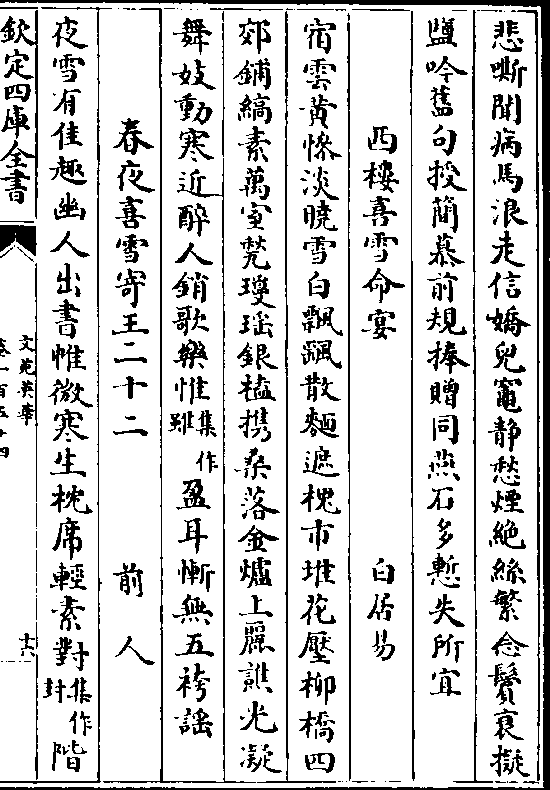 悲嘶聞病馬浪走信嬌兒竈静愁煙絶絲繁念鬢衰擬
鹽吟舊句授簡慕前規捧贈同燕石多慙失所宜
西樓喜雪命宴 白居易
宿雲黄惨淡曉雪白飄颻散麵遮槐市堆花壓柳橋四
郊鋪縞素萬室甃瓊瑶銀榼携桑落金爐上麗譙光凝
舞妓動寒近醉人銷歌樂惟集作雖盈耳慚無五袴謡
春夜喜雪寄王二十二 前人
夜雪有佳趣幽人出書帷微寒生枕席輕素對集作封階
欽定四庫全書
文苑英華
卷一百五十四
十六